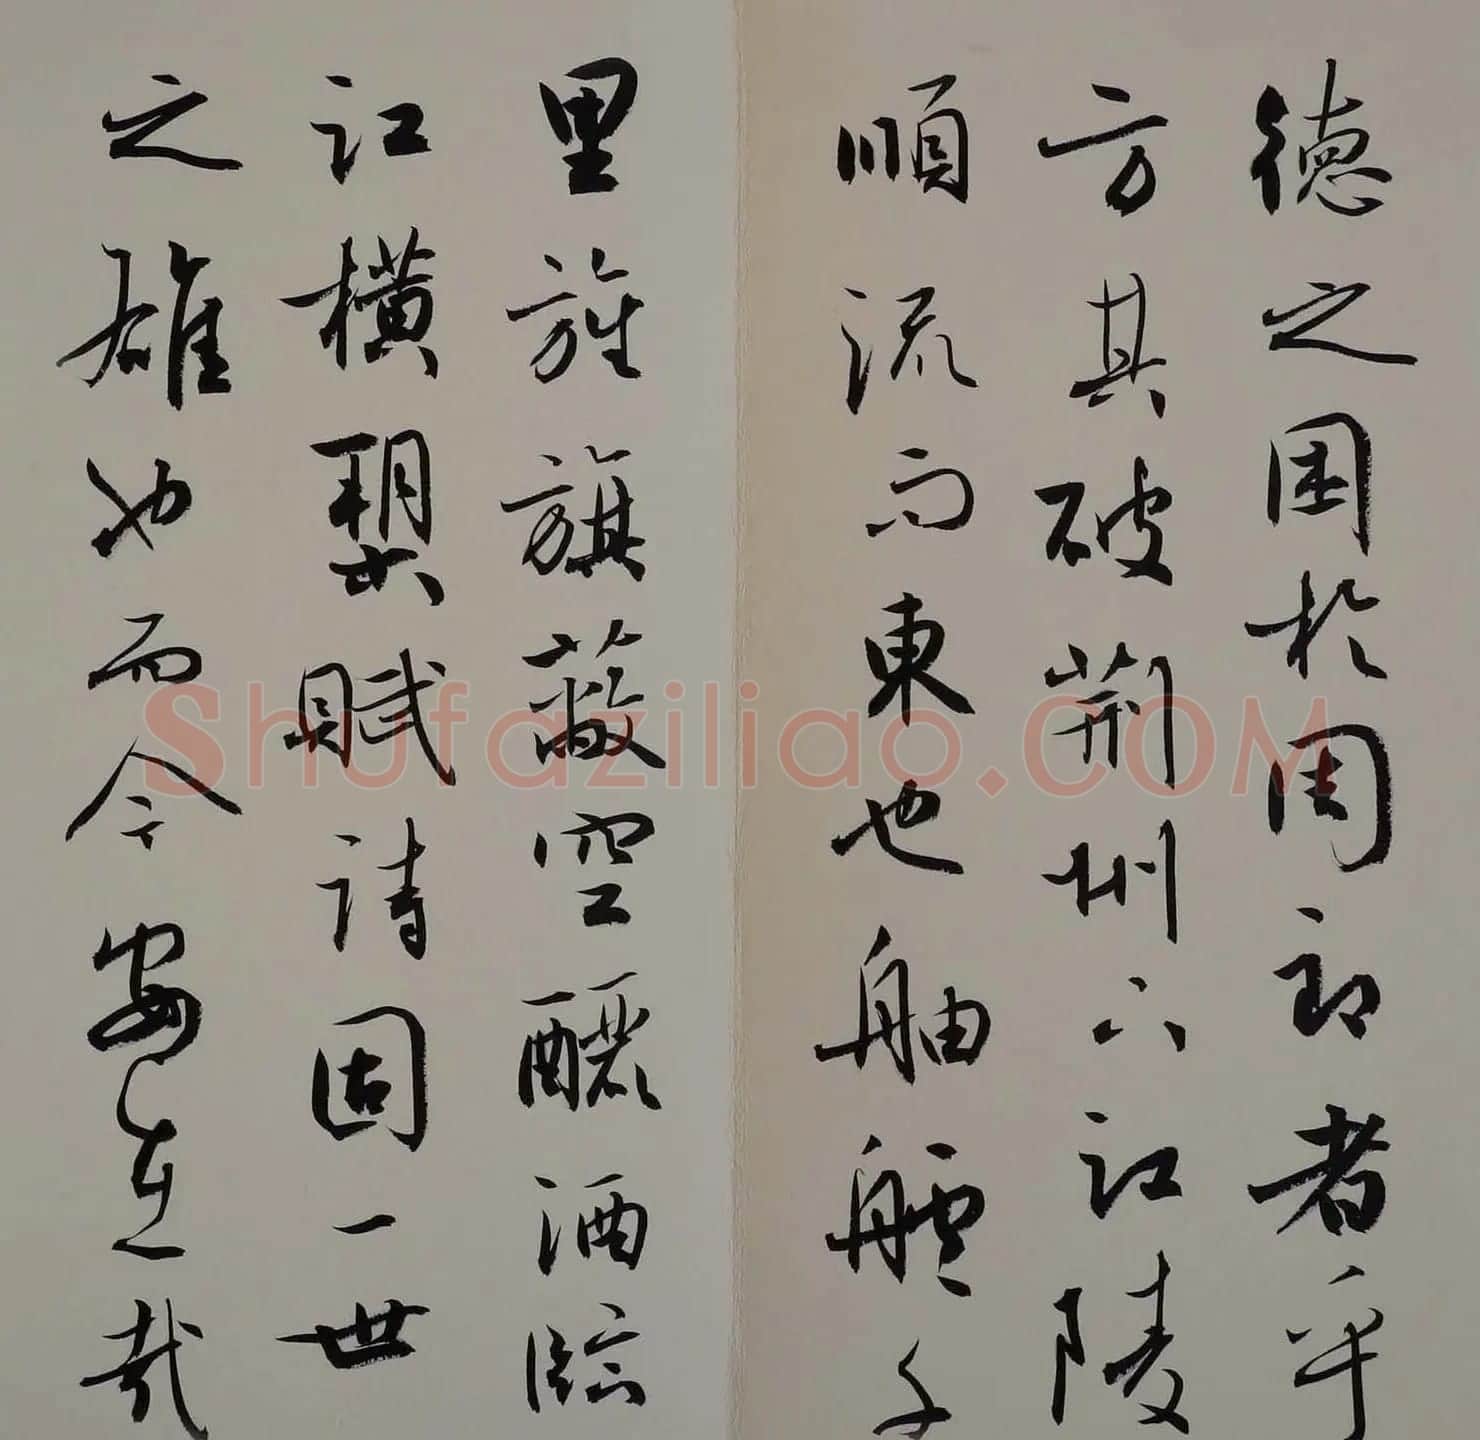 德之困於周郎者乎
方其破荆州下江陵
順流而東也舳艫千
里旌旗蔽空釃酒臨
江橫槊賦詩固一世
之雄也而今安在哉
Shufaziliao.COM